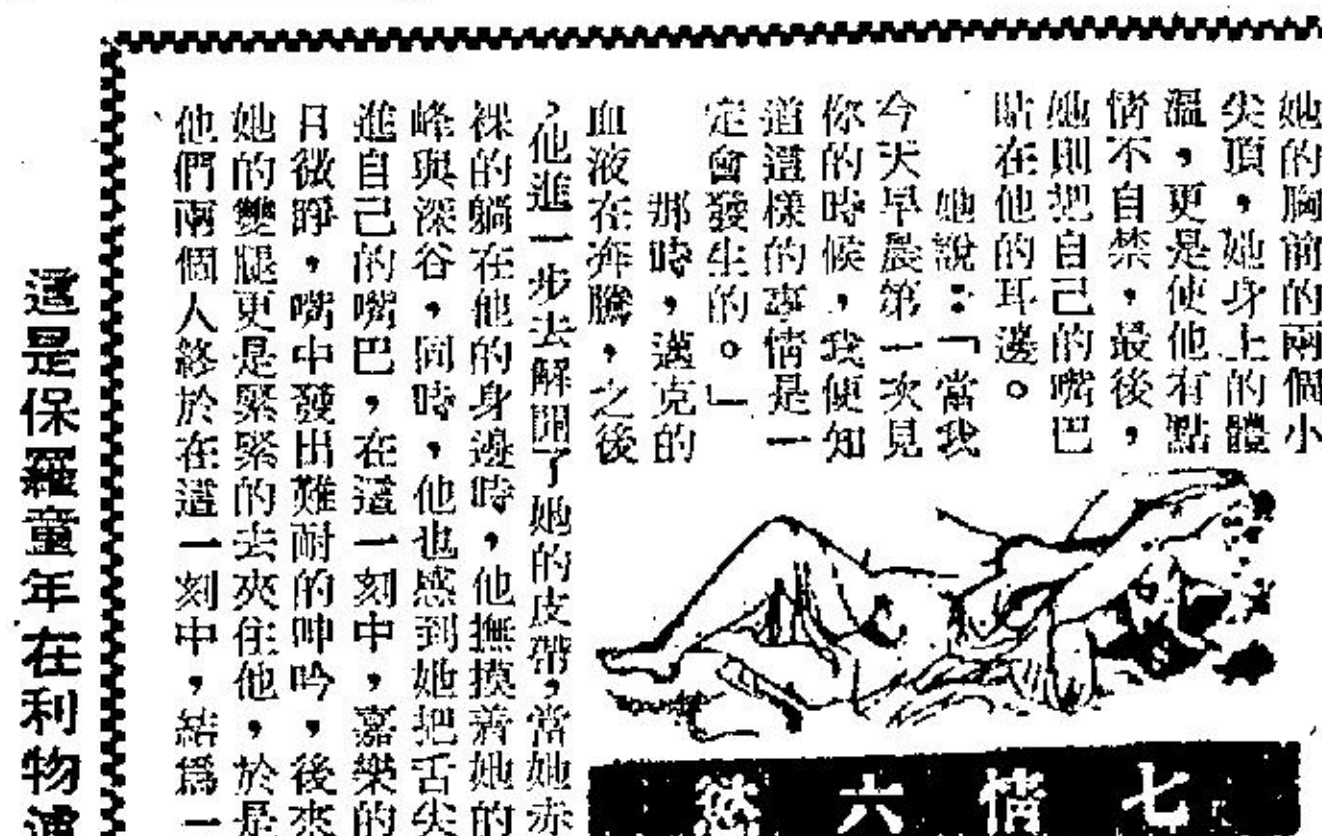 她的胸前的兩個小
尖頂，她身上的體
溫，更是使他有點
情不自禁，最後，
她則把自己的嘴巴
貼在他的耳邊。
她說：「當我
今天早晨第一次見
你的時候，我便知
道這樣的事情是一
定會發生的。」
那時，邁克的
血液在奔騰，之後
，他進一步去解開了她的皮帶，當她赤
裸的躺在他的身邊時，他撫摸着她的
峰與深谷，同時，他也感到她把舌尖
進自己的嘴巴，在這一刻中，嘉樂的
目微睜，嘴中發出難耐的呻吟，後來
她的變腿更是緊緊的去夾住他，於是
他們兩個人終於在這一刻中，結爲一
、
七情六慾
這是保羅童年在利物浦